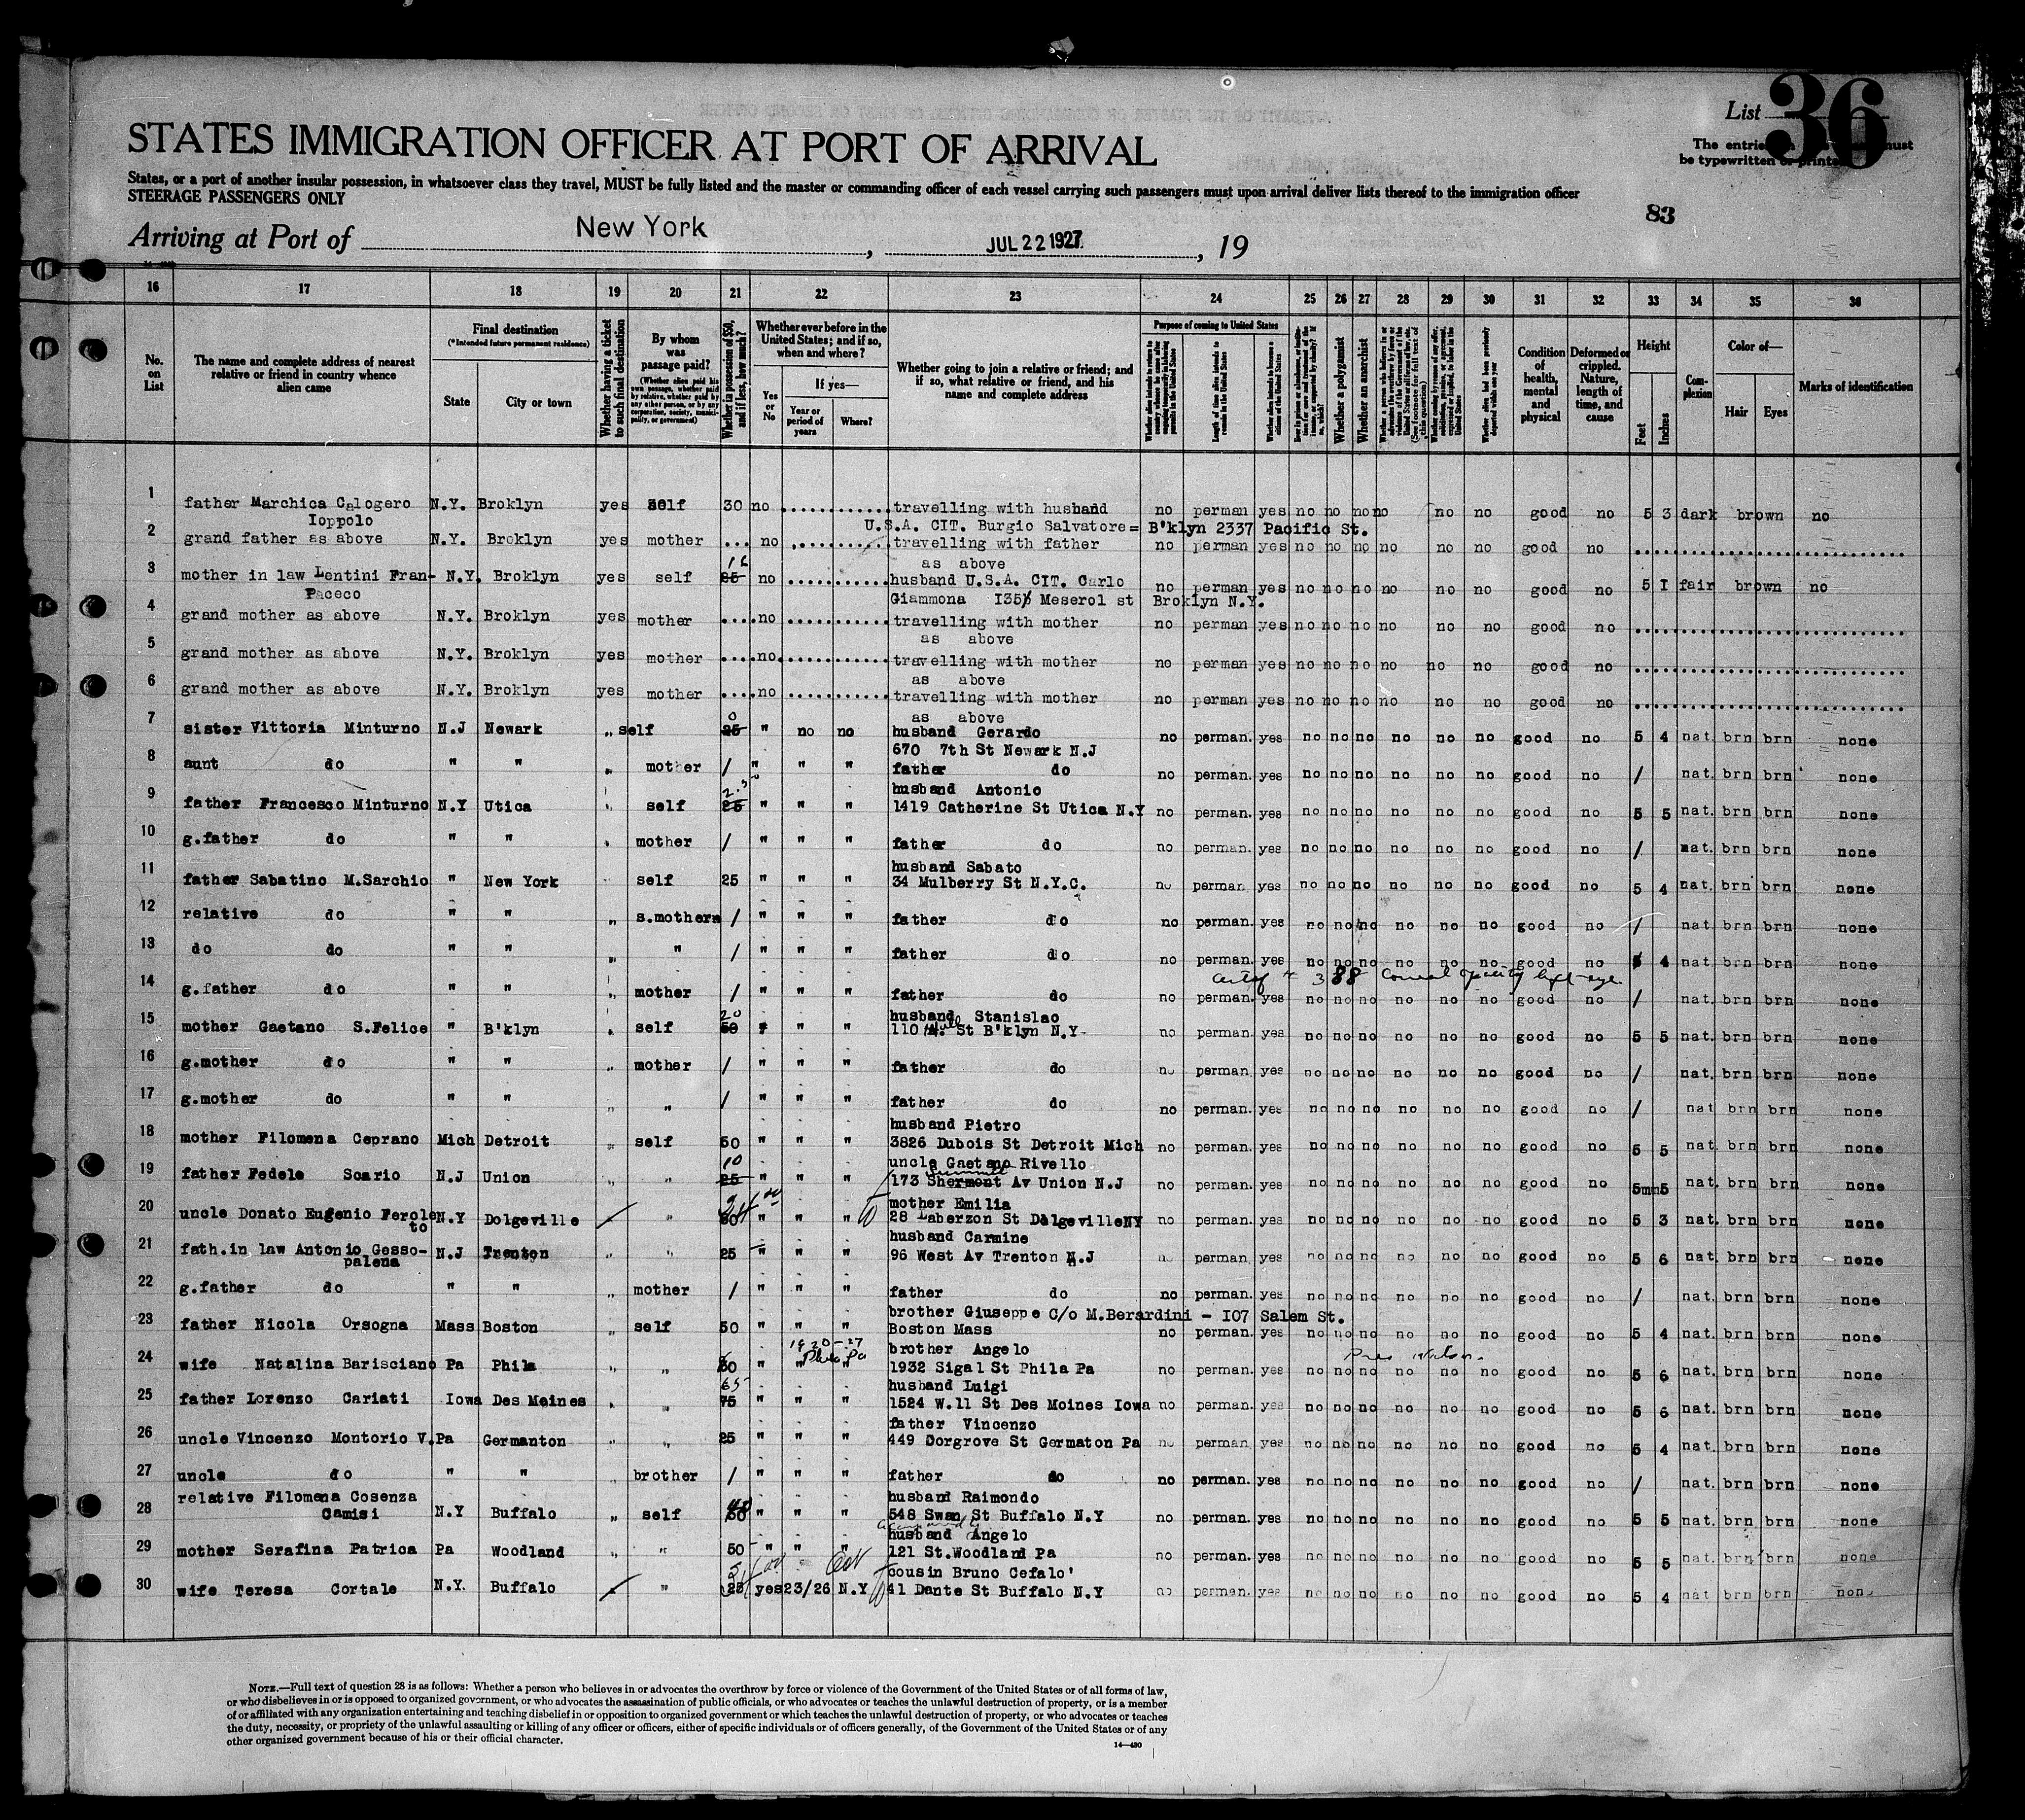 List 36
The entries must
be typewritten or printed
STATES IMMIGRATION OFFICER AT PORT OF ARRIVAL
States, or a port of another insular possession, in whatsoever class they travel, MUST be fully listed and the master or commanding officer of each vessel carrying such passengers must upon arrival deliver lists thereof to the immigration officer
STEERAGE PASSENGERS ONLY
83
Arriving at Port of New York, JUL 22 1927, 19
16 17 18 19 20 21 22 23 24 25 26 27 28 29 30 31 32 33 34 35 36
No. on List
The name and complete address of nearest relative or friend in country whence alien came
Final destination
(*Intended future permanent residence)
State
City or town
Whether having a ticket to such final destination
By whom was passage paid?
(Whether alien paid his own passage, whether paid by relative, whether paid by any other person, or by any corporation, society, municipality, or government)
Whether in possession of $50, and if less, how much?
Whether ever before in the United States; and if so, when and where?
Yes or No
If yes—
Year or period of years
Where?
Whether going to join a relative or friend; and if so, what relative or friend, and his name and complete address
Purpose of coming to United States
Length of time alien intends to remain in the United States
Whether alien intends to become a citizen of the United States
Whether a polygamist
Whether an anarchist
Condition of health, mental and physical
Deformed or crippled. Nature, length of time, and cause
Height
Feet
Inches
Complexion
Color of—
Hair
Eyes
Marks of identification
1 father Marchica Calogero N.Y. Broklyn yes self 30 no travelling with husband no perman yes no no no no no no good no 5 3 dark brown no
Ioppolo U.S.A. CIT. Burgio Salvatore= B'klyn 2337 Pacific St.
2 grand father as above N.Y. Broklyn yes mother ... no travelling with father no perman yes no no no no no no good no
as above
3 mother in law Lentini Fran- N.Y. Broklyn yes self 25 no husband U.S.A. CIT. Carlo no perman yes no no no no no no good no 5 I fair brown no
Paceco Giammona Meserol st Broklyn N.Y.
4 grand mother as above N.Y. Broklyn yes mother .... no travelling with mother no perman yes no no no no no no good no
as above
5 grand mother as above N.Y. Broklyn yes mother .... no travelling with mother no perman yes no no no no no no good no
as above
6 grand mother as above N.Y. Broklyn yes mother .... no travelling with mother no perman yes no no no no no no good no
as above
7 sister Vittoria Minturno N.J Newark " self 0 25 " no no husband Gerardo no perman. yes no no no no no no good no 5 4 nat. brn brn none
670 7th St Newark N.J
8 aunt do " " " mother / " " " father do no perman. yes no no no no no no good no / nat. brn brn none
husband Antonio
9 father Francesco Minturno N.Y Utica " self 25 " " " 1419 Catherine St Utica N.Y no perman. yes no no no no no no good no 5 5 nat. brn brn none
10 g.father do " " " mother / " " " father do no perman. yes no no no no no no good no / nat. brn brn none
husband Sabato
11 father Sabatino M.Sarchio " New York self 25 " " " 34 Mulberry St N.Y.C. no perman. yes no no no no no no good no 5 4 nat. brn brn none
12 relative do " " " s.mother / " " " father do no perman. yes no no no no no no good no / nat. brn brn none
13 do do " " " " / " " " father do no perman. yes no no no no no no good no 4 nat. brn brn none
388 Corneal opacity left eye
14 g.father do " " " mother / " " " father do no perman. yes no no no no no no good no / nat. brn brn none
20 husband Stanislao
15 mother Gaetano S.Felice " B'klyn " self 50 " " 110 Hull St B'klyn N.Y no perman. yes no no no no no no good no 5 5 nat. brn brn none
16 g.mother do " " " mother / " " " father do no perman. yes no no no no no no good no / nat. brn brn none
17 g.mother do " " " " / " " " father do no perman. yes no no no no no no good no / nat brn brn none
husband Pietro
18 mother Filomena Ceprano Mich Detroit " self 50 " " " 3826 Dubois St Detroit Mich no perman. yes no no no no no no good no 5 5 nat. brn brn none
10 uncle Gaetano Rivello
Summit
19 father Fedele Scario N.J Union " " 25 " " " 173 Shermont Av Union N.J no perman. yes no no no no no no good no 5mm5 nat. brn brn none
mother Emilia
20 uncle Donato Eugenio Ferole N.Y Dolgeville " " " " 28 Laberzon St DolgevilleNY no perman. yes no no no no no no good no 5 3 nat. brn brn none
to husband Carmine
21 fath.in law Antonio Gesso- N.J Trenton " " 25 " " " 96 West Av Trenton N.J no perman. yes no no no no no no good no 5 6 nat. brn brn none
palena
22 g.father do " " " mother / " " " father do no perman. yes no no no no no no good no / nat. brn brn none
brother Giuseppe C/o M.Berardini - I07 Salem St.
23 father Nicola Orsogna Mass Boston " self 50 " " " Boston Mass no perman. yes no no no no no no good no 5 4 nat. brn brn none
1920-27 Phila Pa brother Angelo Pres Wilson
24 wife Natalina Barisciano Pa Phila " " " " " 1932 Sigal St Phila Pa no perman. yes no no no no no no good no 5 6 nat. brn brn none
65 husband Luigi
25 father Lorenzo Cariati Iowa Des Moines " " 75 " " " 1524 W.11 St Des Moines Iowa no perman. yes no no no no no no good no 5 6 nat. brn brn none
father Vincenzo
26 uncle Vincenzo Montorio V. Pa Germanton " " 25 " " " 449 Dorgrove St Germaton Pa no perman yes no no no no no no good no 5 4 nat. brn brn none
27 uncle do " " " brother / " " " father do no perman. yes no no no no no no good no / nat. brn brn none
relative Filomena Cosenza husband Raimondo
28 Camisi N.Y Buffalo " self " " " 548 Swan St Buffalo N.Y no perman. yes no no no no no no good no 5 5 nat. brn brn none
husband Angelo
29 mother Serafina Patrica Pa Woodland " " 50 " " " 121 St.Woodland Pa no perman. yes no no no no no no good no 5 5 nat. brn brn none
cousin Bruno Cefalo'
30 wife Teresa Cortale N.Y. Buffalo " 25 yes 23/26 N.Y 41 Dante St Buffalo N.Y no perman. yes no no no no no no good no 5 4 nat brn brn none
NOTE.—Full text of question 28 is as follows: Whether a person who believes in or advocates the overthrow by force or violence of the Government of the United States or of all forms of law,
or who disbelieves in or is opposed to organized government, or who advocates the assassination of public officials, or who advocates or teaches the unlawful destruction of property, or is a member
of or affiliated with any organization entertaining and teaching disbelief in or opposition to organized government or which teaches the unlawful destruction of property, or who advocates or teaches
the duty, necessity, or propriety of the unlawful assaulting or killing of any officer or officers, either of specific individuals or of officers generally, of the Government of the United States or of any
other organized government because of his or their official character.
14—430